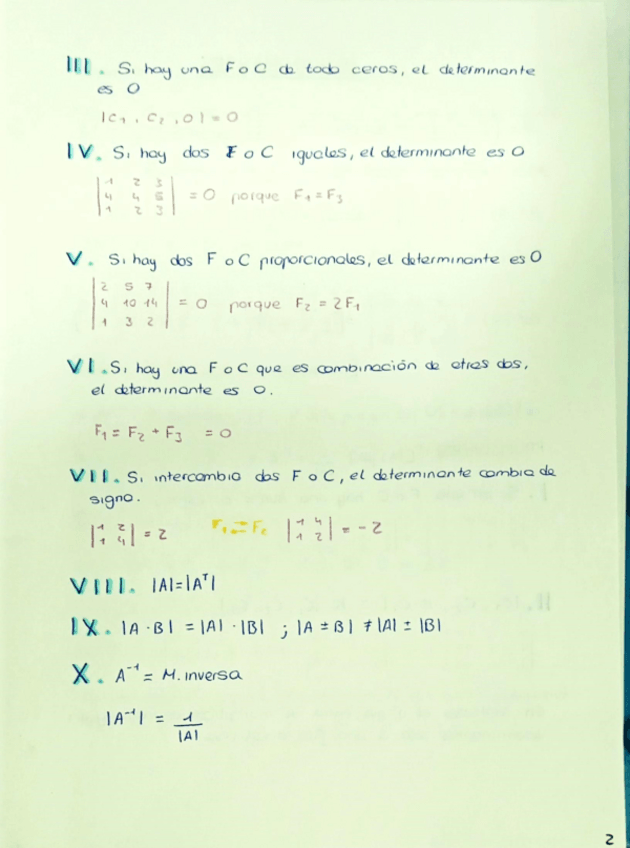 III. Si hay una F o C de todo ceros, el determinante
es 0
|C₁, C₂, 0| = 0
IV. Si hay dos F o C iguales, el determinante es 0
|1 2 3|
|4 4 5| = 0 porque F₁ = F₃
|1 2 3|
V. Si hay dos F o C proporcionales, el determinante es 0
|2 5 7|
|4 10 14| = 0 porque F₂ = 2F₁
|1 3 2|
VI. Si hay una F o C que es combinación de otras dos,
el determinante es 0.
F₁ = F₂ + F₃ = 0
VII. Si intercambio dos F o C, el determinante cambia de
signo.
|1 2| = 2 F₁ ⇄ F₂ |1 4| = -2
|1 4| |1 2|
VIII. |A| = |Aᵀ|
IX. |A · B| = |A| · |B| ; |A ± B| ≠ |A| ± |B|
X. A⁻¹ = M. inversa
|A⁻¹| = 1/|A|
2